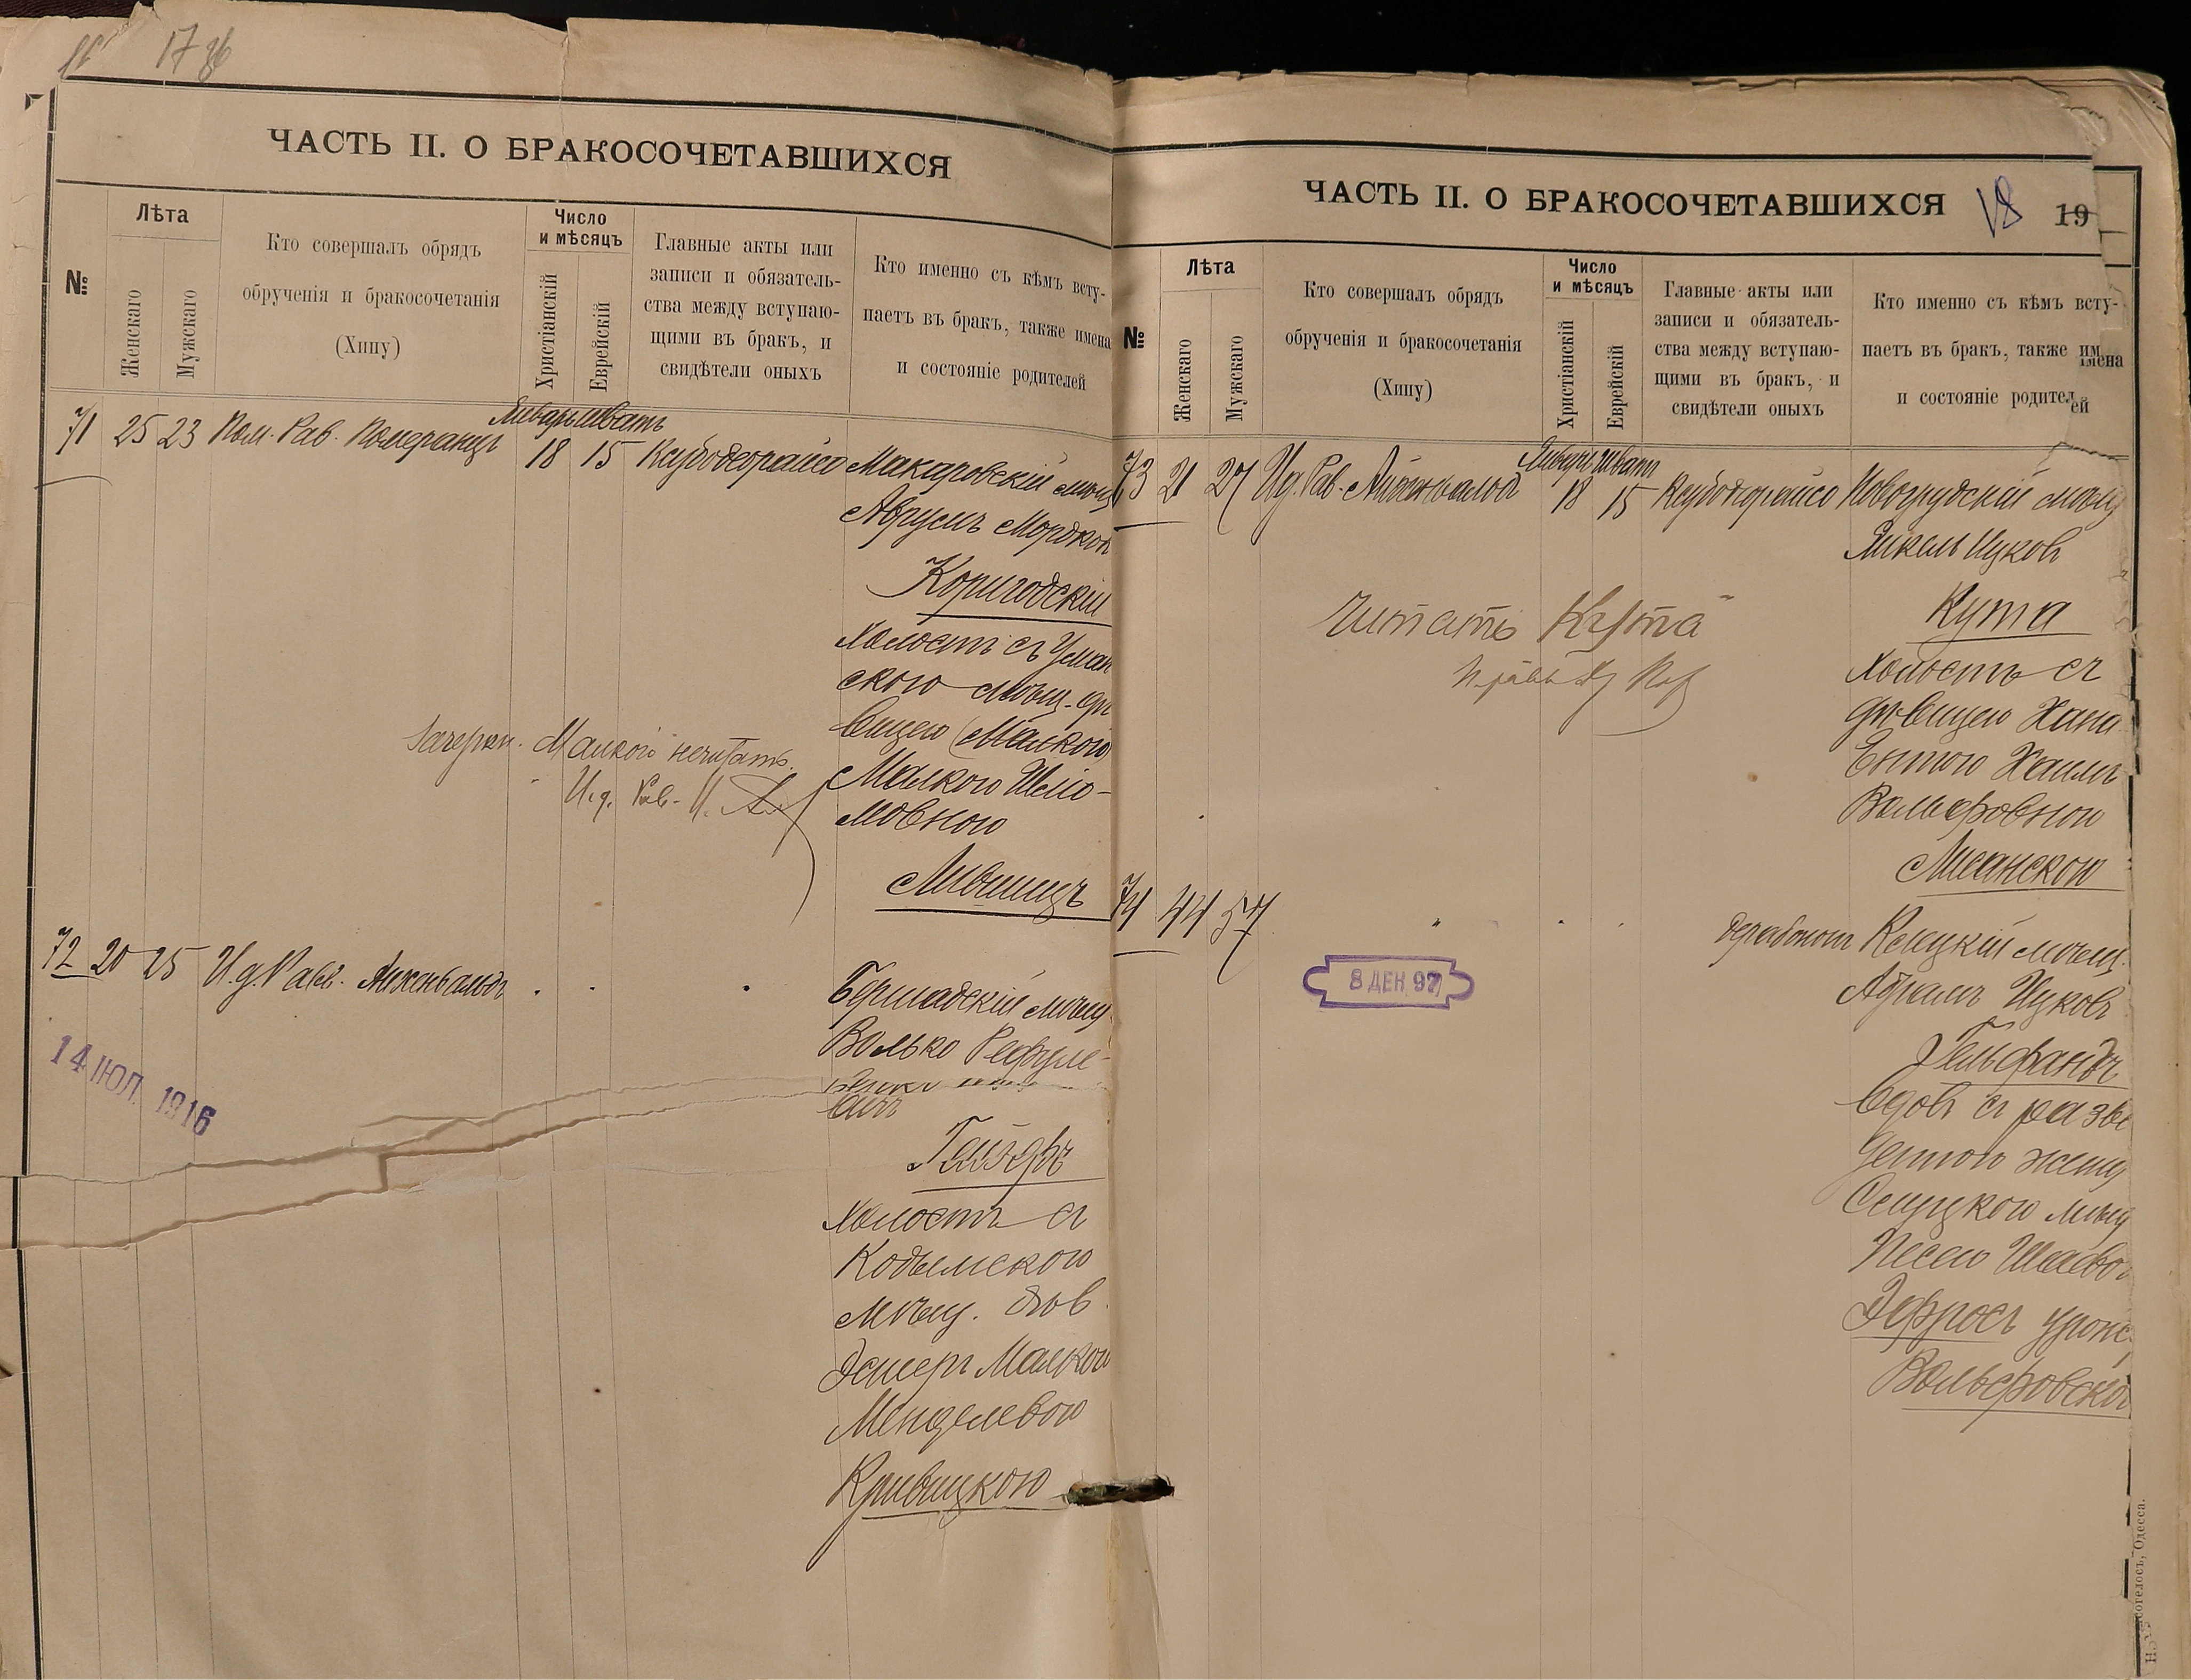 17
ЧАСТЬ II. О БРАКОСОЧЕТАВШИХСЯ
№
Лѣта
Женскаго
Мужскаго
Кто совершалъ обрядъ
обрученія и бракосочетанія
(Хипу)
Число
и мѣсяцъ
Христіанскій
Еврейскій
Главные акты или
записи и обязатель-
ства между вступаю-
щими въ бракъ, и
свидѣтели оныхъ
Кто именно съ кѣмъ всту-
паетъ въ бракъ, также имена
и состояніе родителей
Январь Шватъ
71 25 23 Пом. Рав. Померанцъ 18 15 Ксубодеорайсо Макаровскій мѣщ
Аврумъ Мордков
Коригодскій
холостъ съ Уман
скою мѣщ. дѣ
вицею (Малкою)
Малкою Шлио-
мовною
Лившицъ
Зачеркн. Малкою нечитать.
И.д. Рав. И.
72 20 25 И.д. Равв. Айзенвальдъ . . .
Бершадскій мѣщ
Волько Рефуле-
вичъ
Гойзфъ
холостъ съ
Кодымскою
мѣщ. дѣв.
Эстеръ Малкою
Менделевою
Кривицкою
14 ІЮЛ. 1916
ЧАСТЬ II. О БРАКОСОЧЕТАВШИХСЯ
18 19
№
Лѣта
Женскаго
Мужскаго
Кто совершалъ обрядъ
обрученія и бракосочетанія
(Хипу)
Число
и мѣсяцъ
Христіанскій
Еврейскій
Главные акты или
записи и обязатель-
ства между вступаю-
щими въ бракъ, и
свидѣтели оныхъ
Кто именно съ кѣмъ всту-
паетъ въ бракъ, также имена
и состояніе родителей
Январь Шватъ
73 21 27 И.д. Рав. Айзенвальдъ 18 15 Ксубодеорайсо Новогрудскій мѣщ
Янкель Ицковъ
Кута
холостъ съ
дѣвицею Хана
Ентою Хаимъ
Вольфовною
Лисанскою
Читать "Кута"
74 44 57 " . . дерабонон Клецкій мѣщ.
Абрамъ Ицковъ
Гельфандъ
вдовъ съ разве
денною жену
Слуцкою мѣщ
Песею Шаево
Эфросъ урожд
Вольфовской
8 ДЕН. 97